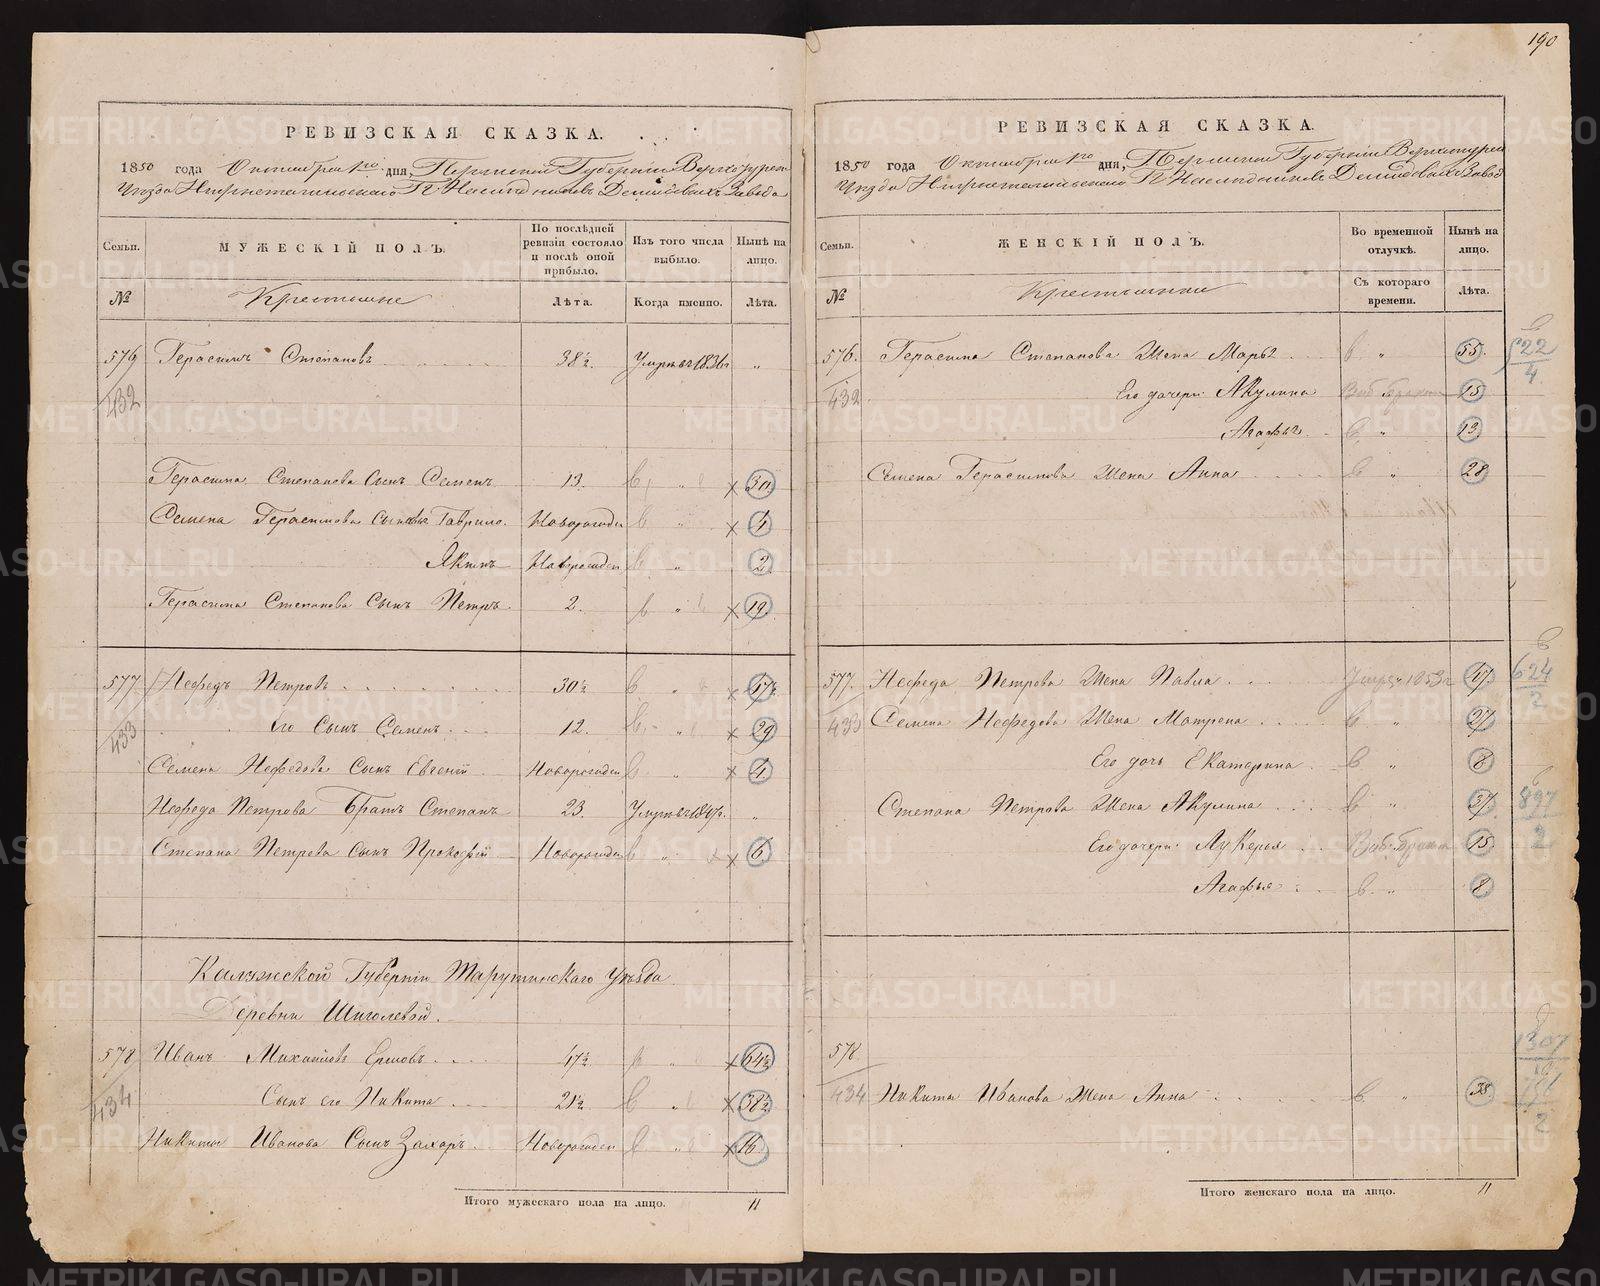 190
РЕВИЗСКАЯ СКАЗКА.
1850 года Октября 1го дня, Пермской Губерніи Верхотурск
Уѣзда Нижнетагильскаго Г. Наслѣдниковъ Демидовыхъ Завода
Семьи. МУЖЕСКІЙ ПОЛЪ. По послѣдней ревизіи состояло и послѣ оной прибыло. Изъ того числа выбыло. Нынѣ на лицо.
№ Крестьяне Лѣта. Когда именно. Лѣта.
576 Герасимъ Степановъ 38½. Умръ въ 1836 „
432
Герасима Степанова Сынъ Семенъ 13. в „ × 30
Семена Герасимова Сыновья Гаврило. Новорожден в „ × 4
Якимъ Новорожден в „ 2
Герасима Степанова Сынъ Петръ. 2. в „ × 19.
577 Нефедъ Петровъ 30½ в „ × 47½
433 Его Сынъ Семенъ 12. в „ × 29
Семена Нефедова Сынъ Евгеній Новорожден в „ × 4
Нефеда Петрова Братъ Степанъ 23. Умръ въ 1847. „
Степана Петрова Сынъ Прокофій Новорожден в „ × 6
Калужской Губерніи Тарутинскаго Уѣзда
Деревни Шиголевой.
578 Иванъ Михайловъ Ершовъ 47½ в „ × 64½
434 Сынъ его Никита 21½ в „ × 38½
Никиты Иванова Сынъ Захаръ Новорожден в „ × 16
Итого мужескаго пола на лицо. 11
РЕВИЗСКАЯ СКАЗКА.
1850 года Октября 1го дня, Пермской Губерніи Верхотурск
Уѣзда Нижнетагильскаго Г. Наслѣдниковъ Демидовыхъ Завод
Семьи. ЖЕНСКІЙ ПОЛЪ. Во временной отлучкѣ. Нынѣ на лицо.
№ Крестьянки Съ котораго времени. Лѣта.
576. Герасима Степанова Жена Марья в „ 55.
432 Его дочери: Акулина Выб. браком 15
Агафья в „ 13
Семена Герасимова Жена Анна в „ 28
577. Нефеда Петрова Жена Павла Умр. 1853 г 47.
433 Семена Нефедова Жена Матрена в „ 27
Его дочь Екатерина в „ 8
Степана Петрова Жена Акулина в „ 37.
Его дочери: Лукерья Выб. браком 15
Агафья в „ 8
578
434 Никиты Иванова Жена Анна в „ 38
Итого женскаго пола на лицо. 11
522
4
624
2
897
2
1307
2
METRIKI.GASO-URAL.RU